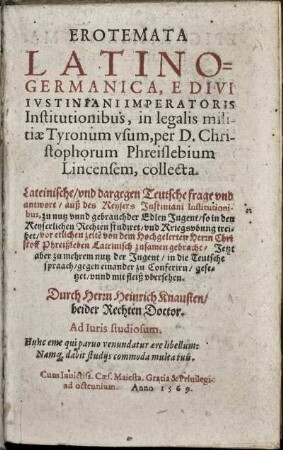 EROTEMATA
LATINO-
GERMANICA, E DIVI
IVSTINIANI IMPERATORIS
Institutionibus, in legalis mili-
tiæ Tyronum vsum, per D. Chri-
stophorum Phreislebium
Lincensem, collecta.
Lateinische/vnd dargegen Teutsche frage vnd
antwort/ auß des Keysers Justiniani Institutioni-
bus, zu nutz vund gebrauch der Edlen Jugent/ so in den
Keyserlichen Rechten studiret/ vnd Kriegsvbung trei-
bet/ vor etlichen zeitē von dem Hochgelerten Herrn Chri
stoff Phreißleben Lateinisch zusamen gebracht/ Jetzt
aber zu mehrem nutz der Jugent/ in die Teutsche
spraach/ gegen einander zu Conferirn/ gese-
tzet/ vnnd mit fleiß vbersehen.
Durch Herrn Heinrich Knausten/
beider Rechten Doctor.
Ad Iuris studiosum.
Hunc eme qui paruo venundatur ære libellum:
Namq, dabit studijs commoda multa tuis.
Cum Inuictiss. Cæs. Maiesta. Gratia & Priuilegio
ad octennium. Anno 1569.